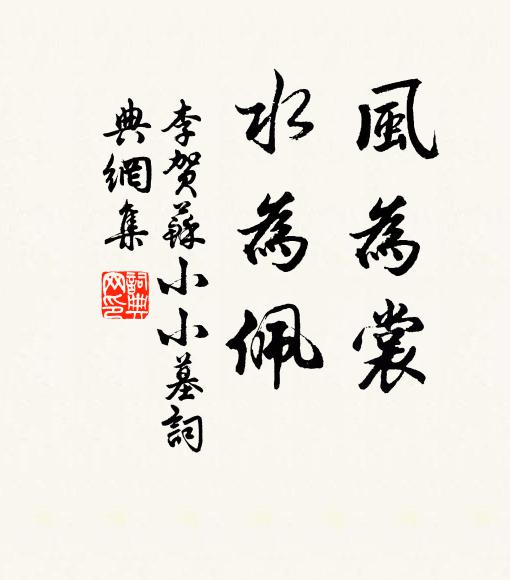 風為裳
水為佩
李賀蘇小小墓詞
典網集
詞典网印